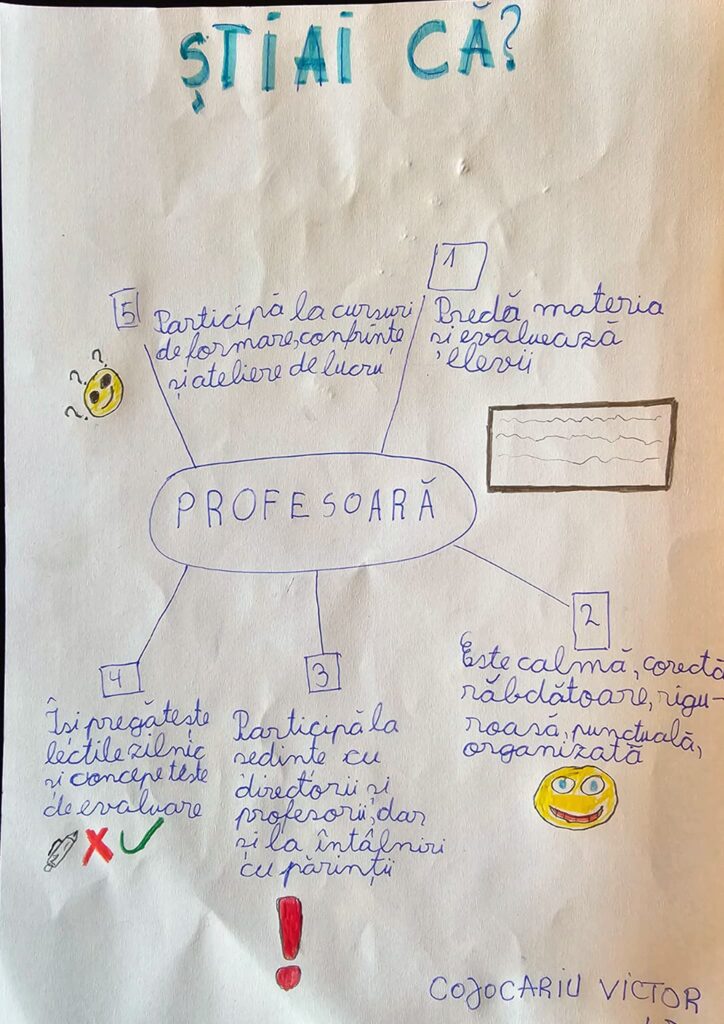 ȘTIAI CĂ?
1
Predă materia
și evaluează
elevii
5
Participă la cursuri
de formare, confrințe
și ateliere de lucru
? ? ?
PROFESOARĂ
2
Este calmă, corectă
răbdătoare, rigu-
roasă, punctuală,
organizată
3
Participă la
sedinte cu
directorii și
profesorii, dar
și la întâlniri
cu părinții
4
Își pregătește
lecțiile zilnic
și concepe teste
de evaluare
COJOCARIU VICTOR